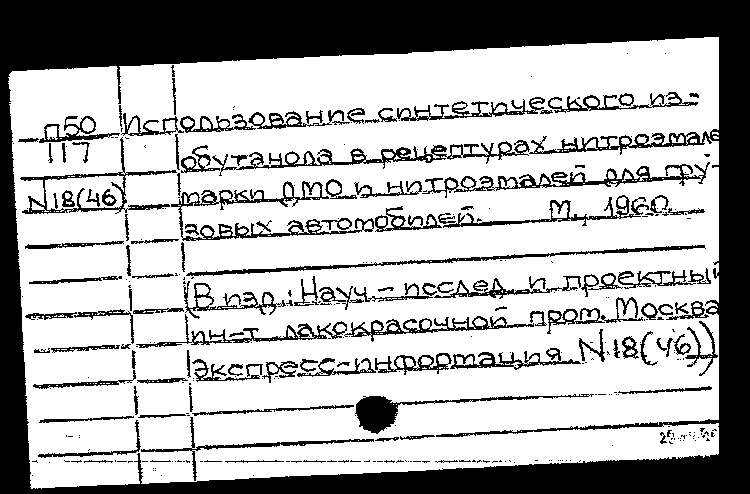 п50 Использование синтетического из-
117 обутанола в рецептурах нитроэмале
N18(46) марки ДМО и нитроэмалей для гру-
зовых автомобилей. М., 1960.
(В изд.: Науч.-исслед. и проектный
ин-т лакокрасочной пром. Москва
Экспресс-информация. N18(46))